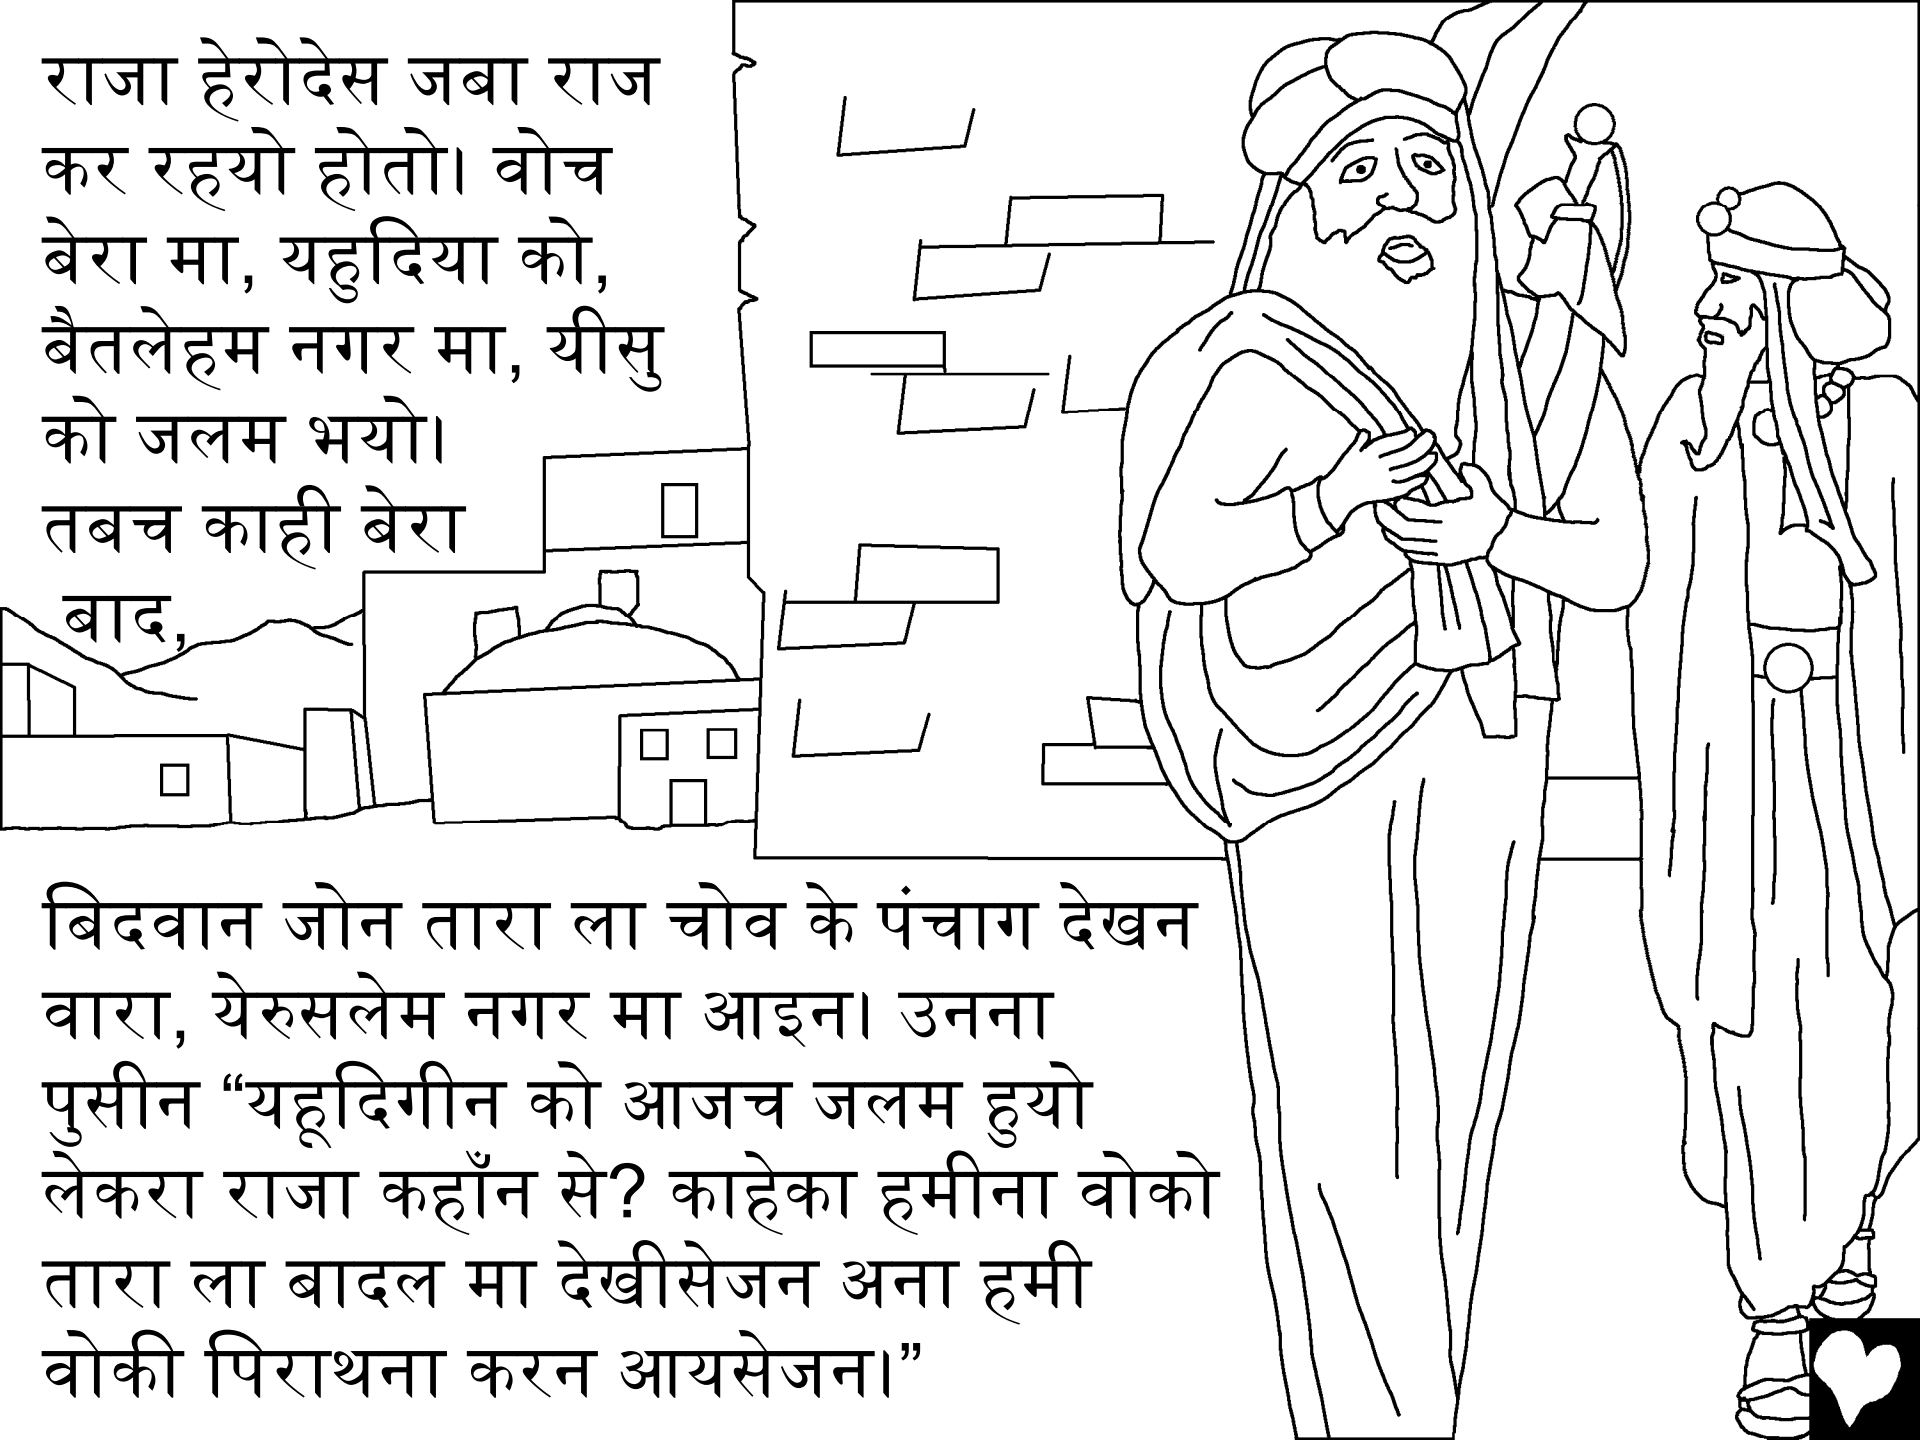 राजा हेरोदेस जबा राज
कर रहयो होतो। वोच
बेरा मा, यहुदिया को,
बैतलेहम नगर मा, यीसु
को जलम भयो।
तबच काही बेरा
बाद,
बिदवान जोन तारा ला चोव के पंचाग देखन
वारा, येरुसलेम नगर मा आइन। उनना
पुसीन “यहूदिगीन को आजच जलम हुयो
लेकरा राजा कहाँन से? काहेका हमीना वोको
तारा ला बादल मा देखीसेजन अना हमी
वोकी पिराथना करन आयसेजन।”